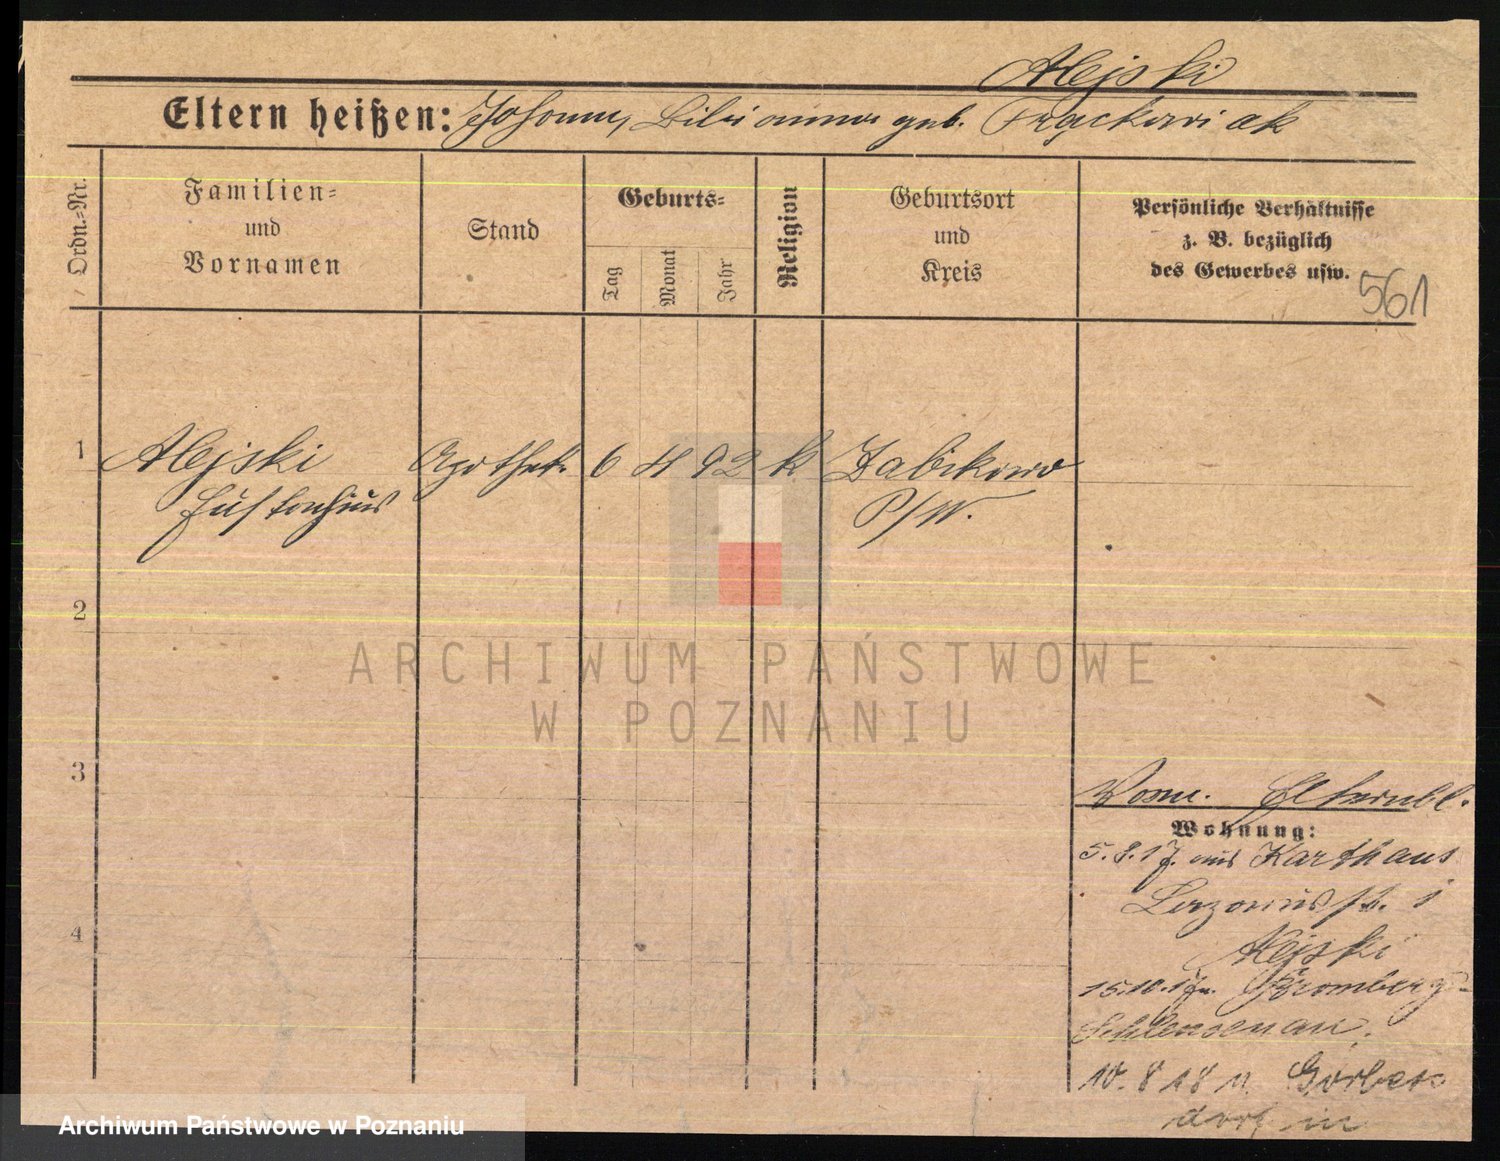 Alejski
Eltern heißen: Johann, geb. Frąckowiak
Ordn.=Nr.
Familien=
und
Vornamen
Stand
Geburts=
Tag
Monat
Jahr
Religion
Geburtsort
und
Kreis
Persönliche Verhältnisse
z. B. bezüglich
des Gewerbes usw.
561
1
Alejski Apothek. 6 4 92 k. Żabikowo
Eustachius P/W.
2
3
4
Vorm. Elternbl.
Wohnung:
5.8.17. aus Karthaus
Lazarusstr. 1
Alejski
15.10.17 n. Bromberg-
Schleusenau.
10.8 18 n.
dorf in
ARCHIWUM PAŃSTWOWE
W POZNANIU
Archiwum Państwowe w Poznaniu